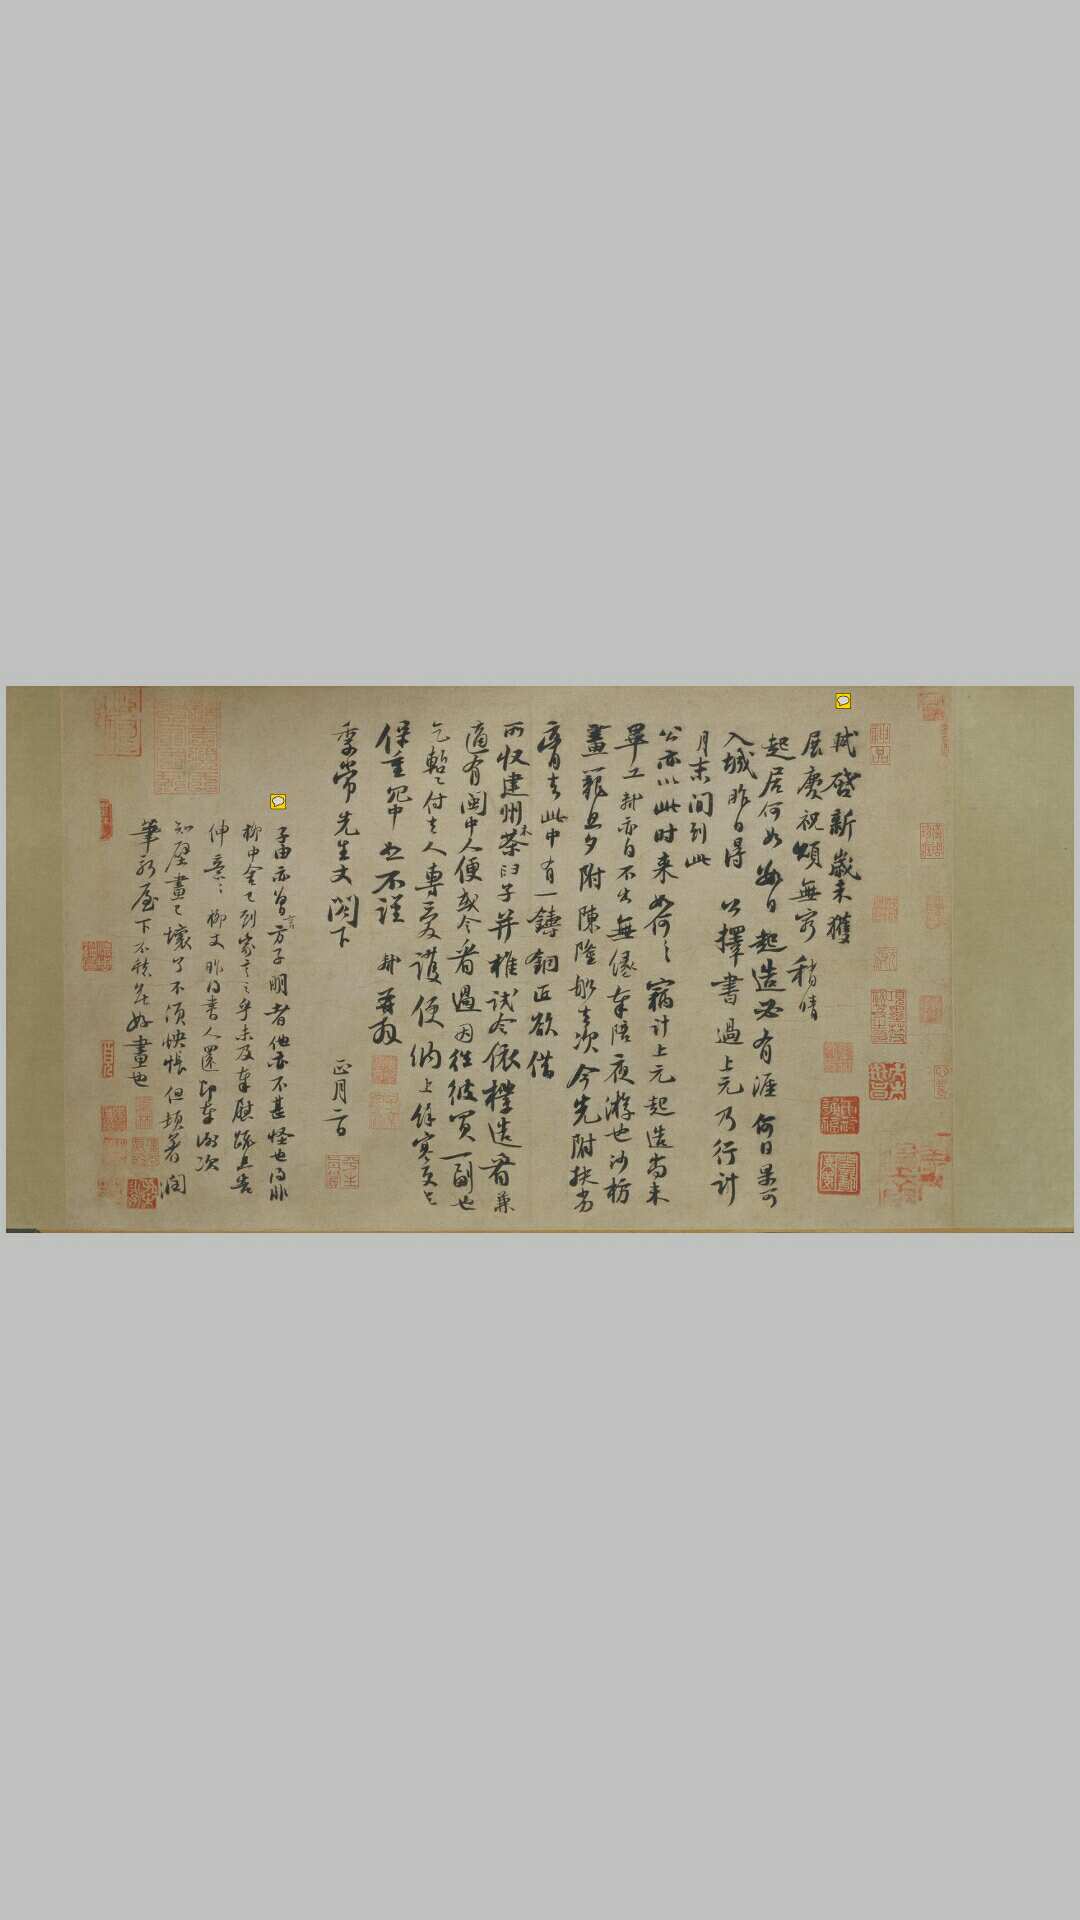 軾啓新歲未獲
展慶祝頌無窮稍晴
起居何如數日起造必有涯何日果可
入城昨日得公擇書過上元乃行計
月末間到此
公亦以此時來如何〻竊計上元起造尚未
畢工軾亦自不出無緣奉陪夜游也沙枋
畫籠旦夕附陳隆船去次今先附扶劣
膏去此中有一鑄銅匠欲借
所收建州木茶臼子并椎試令依樣造看兼
適有閩中人便或令看過因往彼買一副也
乞蹔付去人專愛護便納上餘寒更乞
保重冗中恕不謹軾再拜
季常先生丈閣下
正月二日
子由亦曾言方子明者他亦不甚怪也得非
柳中舍已到家言之乎未及奉慰疏且告
伸意〻柳丈昨得書人還即奉謝次
知壁畫已壞了不須怏悵但頓著潤
筆新屋下不愁無好畫也